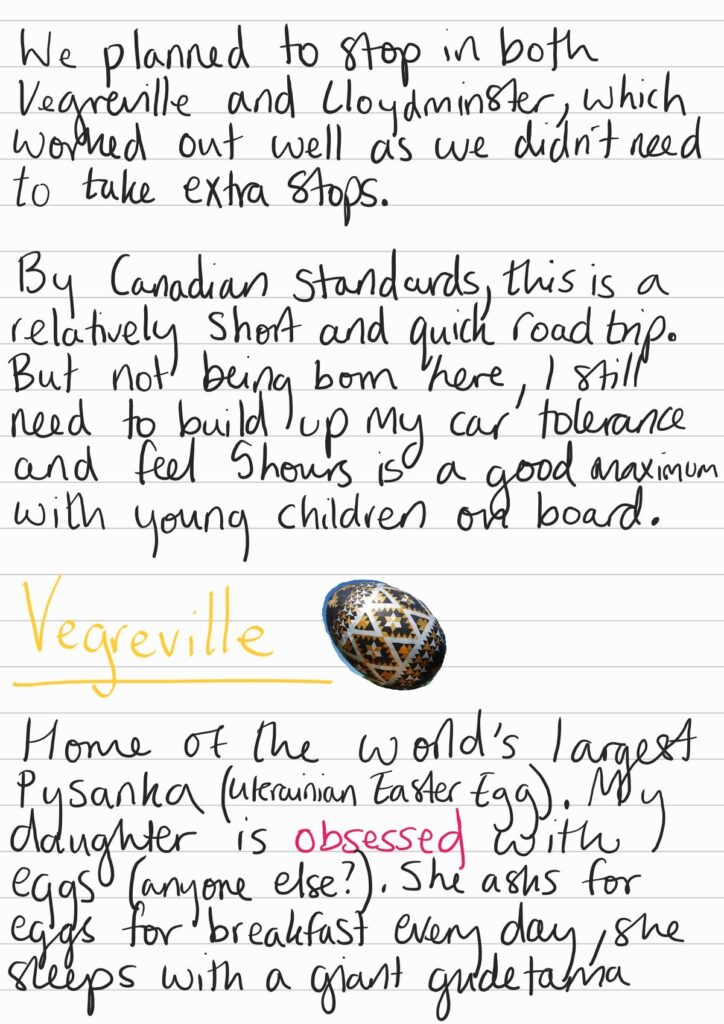 We planned to stop in both
Vegreville and Lloydminster, which
worked out well as we didn't need
to take extra stops.
By Canadian standards, this is a
relatively short and quick road trip.
But not being born here, I still
need to build up my car tolerance
and feel 5hours is a good maximum
with young children on board.
Vegreville
Home of the world's largest
Pysanka (Ukrainian Easter Egg). My
daughter is obsessed with
eggs (anyone else?). She asks for
eggs for breakfast every day, she
sleeps with a giant gudetama